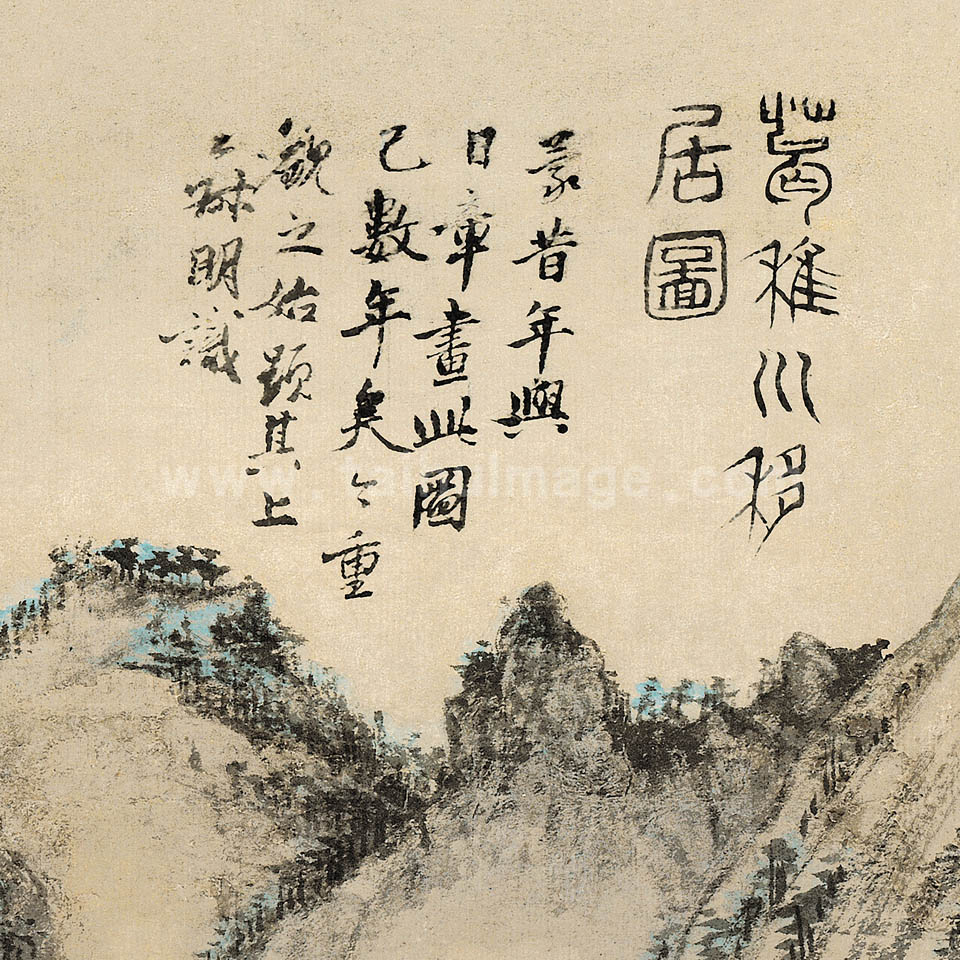 葛稚川移
居圖
蒙昔年與
日章畫此圖
已數年矣今重
觀之始題其上
王叔明識
www.